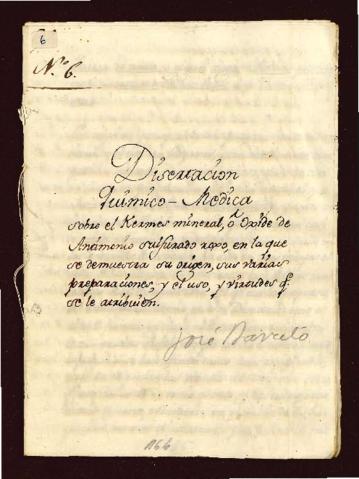 6
N.º 6.
Disertacion
Quimico-Medica
sobre el Kermes mineral, o Oxide de
Antimonio sulfurado roxo, en la que
se demuestra su origen, sus varias
preparaciones, y el uso, y virtudes q.
se le atribuien.
José